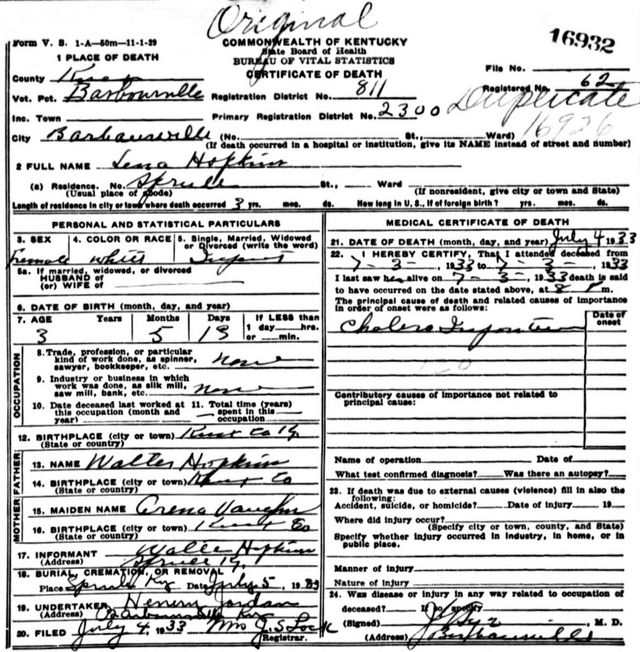 Original
Form V. S. 1-A—50m—11-1-29
COMMONWEALTH OF KENTUCKY
State Board of Health
BUREAU OF VITAL STATISTICS
CERTIFICATE OF DEATH
16932
File No.
Registered No. 62
Duplicate
16926
1 PLACE OF DEATH
County Knox
Vot. Pct. Barbourville Registration District No. 811
Inc. Town Primary Registration District No. 2300
City Barbourville (No. St., Ward)
(If death occurred in a hospital or institution, give its NAME instead of street and number)
2 FULL NAME Lena Hopkins
(a) Residence. No. Sprule St., Ward
(Usual place of abode) (If nonresident, give city or town and State)
Length of residence in city or town where death occurred 3 yrs. mos. ds. How long in U. S., if of foreign birth? yrs. mos. ds.
PERSONAL AND STATISTICAL PARTICULARS
3. SEX 4. COLOR OR RACE 5. Single, Married, Widowed or Divorced (write the word)
Female White
5a. If married, widowed, or divorced
HUSBAND of
(or) WIFE of
6. DATE OF BIRTH (month, day, and year)
7. AGE Years Months Days If LESS than 1 day hrs. or min.
3 5 13
OCCUPATION
8. Trade, profession, or particular kind of work done, as spinner, sawyer, bookkeeper, etc. none
9. Industry or business in which work was done, as silk mill, saw mill, bank, etc. none
10. Date deceased last worked at this occupation (month and year) 11. Total time (years) spent in this occupation
12. BIRTHPLACE (city or town) Knox Co Ky.
(State or country)
FATHER
13. NAME Walter Hopkins
14. BIRTHPLACE (city or town) Knox Co
(State or country)
MOTHER
15. MAIDEN NAME Orena Vaughn
16. BIRTHPLACE (city or town) Knox Co
(State or country)
17. INFORMANT Walter Hopkins
(Address) Sprule Ky.
18. BURIAL, CREMATION, OR REMOVAL
Place Sprule Ky Date July 5, 1933
19. UNDERTAKER Jordan
(Address) Barbourville Ky
20. FILED July 4, 1933 Mrs J. S. Lock
Registrar.
MEDICAL CERTIFICATE OF DEATH
21. DATE OF DEATH (month, day, and year) July 4 1933
22. I HEREBY CERTIFY, That I attended deceased from
7-3-, 1933 to 7-3-, 1933
I last saw her alive on 7-3-, 1933 death is said
to have occurred on the date stated above, at 8 P m.
The principal cause of death and related causes of importance in order of onset were as follows:
Date of onset
Cholera Infantum
Contributory causes of importance not related to principal cause:
Name of operation Date of
What test confirmed diagnosis? Was there an autopsy?
23. If death was due to external causes (violence) fill in also the following:
Accident, suicide, or homicide? Date of injury 19
Where did injury occur?
(Specify city or town, county, and State)
Specify whether injury occurred in industry, in home, or in public place.
Manner of injury
Nature of injury
24. Was disease or injury in any way related to occupation of deceased? If so specify
(Signed) M. D.
(Address) Barbourville